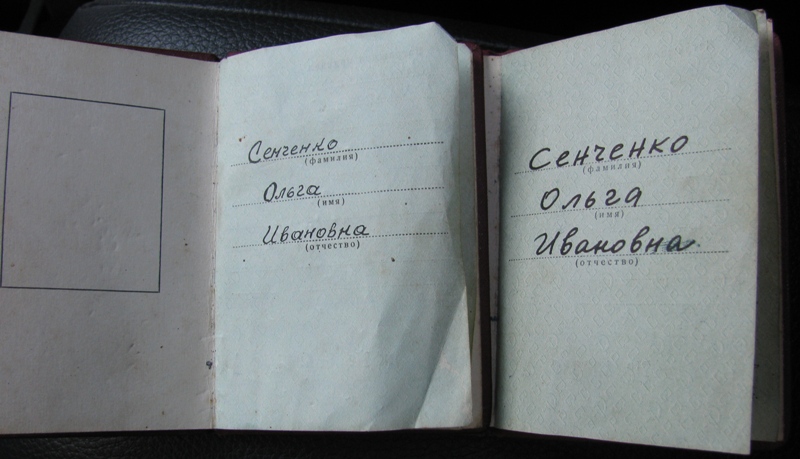 Сенченко
(фамилия)
Ольга
(имя)
Ивановна
(отчество)
Сенченко
(фамилия)
Ольга
(имя)
Ивановна
(отчество)